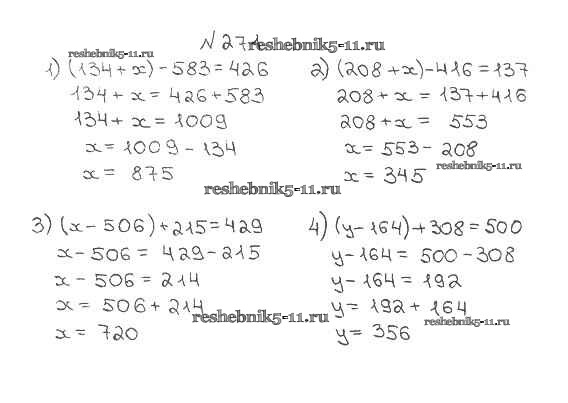 № 271
reshebnik5-11.ru
reshebnik5-11.ru
1) (134 + x) - 583 = 426
134 + x = 426 + 583
134 + x = 1009
x = 1009 - 134
x = 875
2) (208 + x) - 416 = 137
208 + x = 137 + 416
208 + x = 553
x = 553 - 208
reshebnik5-11.ru
x = 345
reshebnik5-11.ru
3) (x - 506) + 215 = 429
x - 506 = 429 - 215
x - 506 = 214
x = 506 + 214
x = 720
reshebnik5-11.ru
4) (y - 164) + 308 = 500
y - 164 = 500 - 308
y - 164 = 192
y = 192 + 164
reshebnik5-11.ru
y = 356